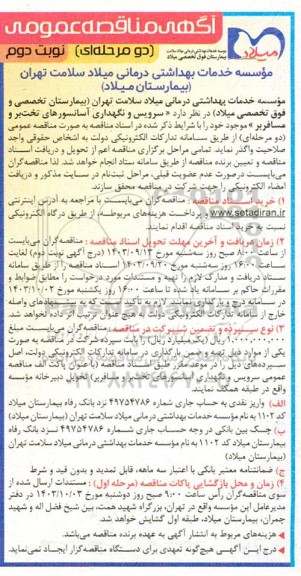 آگهی مناقصه عمومی
(دو مرحله‌ای) نوبت دوم
میلاد
مؤسسه خدمات بهداشتی درمانی میلاد سلامت تهران
بیمارستان فوق تخصصی میلاد
مؤسسه خدمات بهداشتی درمانی میلاد سلامت تهران
(بیمارستان میلاد)
مؤسسه خدمات بهداشتی درمانی میلاد سلامت تهران (بیمارستان تخصصی و
فوق تخصصی میلاد) در نظر دارد « سرویس و نگهداری آسانسورهای تخت‌بر و
مسافربر » موجود خود را با شرایط ذکر شده در اسناد مناقصه به صورت مناقصه عمومی
(دو مرحله‌ای) از طریق سامانه تدارکات الکترونیکی دولت به اشخاص حقوقی واجد
صلاحیت واگذار نماید. تمامی مراحل برگزاری مناقصه اعم از تحویل و دریافت اسناد
مناقصه و تعیین برنده مناقصه از طریق سامانه ستاد انجام خواهد شد. لذا مناقصه‌گران
می‌بایست در صورت عدم عضویت قبلی، مراحل ثبت‌نام در سایت مذکور و دریافت
امضاء الکترونیکی را جهت شرکت در مناقصه محقق سازند.
۱) خرید اسناد مناقصه : مناقصه‌گران می‌بایست با مراجعه به آدرس اینترنتی
www.setadiran.ir و پرداخت هزینه‌های مربوطه، از طریق درگاه الکترونیکی
نسبت به خرید اسناد مناقصه اقدام نمایند.
۲) زمان دریافت و آخرین مهلت تحویل اسناد مناقصه : مناقصه‌گران می‌بایست
از ساعت ۸:۰۰ صبح روز سه‌شنبه مورخ ۱۴۰۳/۰۹/۱۳ (درج آگهی نوبت دوم) لغایت
اسناد مناقصه را از طریق سامانه
ستاد دریافت و مدارک لازم را تهیه و مستندات مورد درخواست را مطابق ضوابط و
مقررات حاکم بر سامانه یاد شده تا ساعت ۱۶:۰۰ روز یکشنبه مورخ ۱۴۰۳/۱۰/۰۲
در سامانه درج و بارگذاری نمایند. لازم به تأکید است که به پیشنهادهای واصله
خارج از سامانه تدارکات الکترونیکی دولت به هیچ عنوان ترتیب اثر داده نخواهد شد.
۳) نوع سپرده و تضمین شرکت در مناقصه : مناقصه‌گران می‌بایست مبلغ
۱.۰۰۰.۰۰۰.۰۰۰ ریال (یک میلیارد ریال) را بابت سپرده شرکت در مناقصه به صورت
یکی از موارد ذیل تهیه و ضمن بارگذاری در سامانه تدارکات الکترونیکی دولت، اصل
سپرده‌های ذیل را در موعد مقرر طبق اسناد مناقصه (با عنوان پاکت الف مناقصه
عمومی سرویس و نگهداری آسانسورهای تخت‌بر و مسافربر) تحویل دبیرخانه مؤسسه
واقع در طبقه همکف نمایند.
الف) واریز نقدی به حساب جاری شماره ۴۹۷۵۴۷۸۶ نزد بانک رفاه بیمارستان میلاد
کد ۱۱۰۲ به نام مؤسسه خدمات بهداشتی درمانی میلاد سلامت تهران (بیمارستان میلاد)
ب) چک بین بانکی در وجه حساب جاری شماره ۴۹۷۵۴۷۸۶ نزد بانک رفاه
بیمارستان میلاد کد ۱۱۰۲ به نام مؤسسه خدمات بهداشتی درمانی میلاد سلامت تهران
(بیمارستان میلاد)
ج) ضمانتنامه معتبر بانکی با اعتبار سه ماهه، قابل تمدید و بدون قید و شرط
۴) زمان و محل بازگشایی پاکات مناقصه (مرحله اول) : مستندات ارسال شده از
سوی مناقصه‌گران رأس ساعت ۹:۰۰ صبح روز دوشنبه مورخ ۱۴۰۳/۱۰/۰۳ در دفتر
مدیرعامل این مؤسسه واقع در تهران، بزرگراه شهید همت، بین شیخ فضل اله و شهید
چمران، بیمارستان میلاد، طبقه اول گشایش خواهد شد.
هزینه‌های مربوط به انتشار آگهی به عهده برنده مناقصه می‌باشد.
درج این آگهی هیچ‌گونه تعهدی برای دستگاه مناقصه‌گزار ایجاد نمی‌نماید.